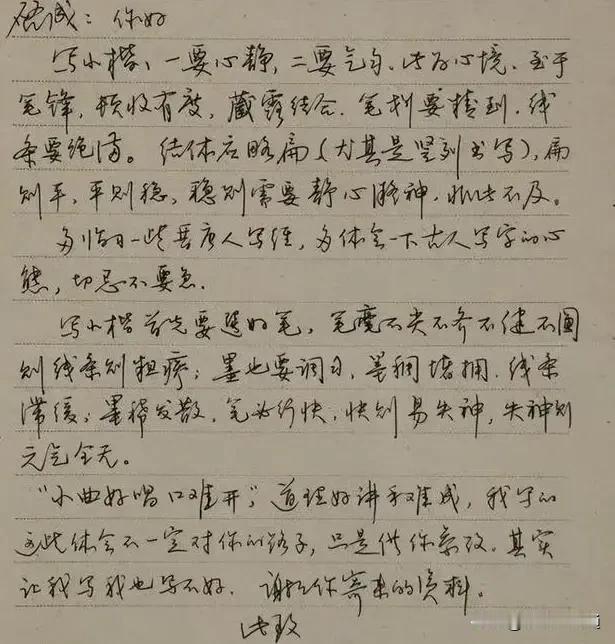 你好
写小楷，一要心静，二要气匀，此为心境。至于
笔锋，顿收有度，藏露结合，笔划要精到，线
条要饱满。结体应略扁（尤其是竖列书写），扁
则平，平则稳，稳则需要静心凝神，非此不及。
多临习一些晋唐人写经，多体会一下古人写字的心
态，切忌不要急。
写小楷首先要选好笔，笔不尖不齐不健不圆
则线条则粗疏；墨也要调匀，墨稠堵拥，线条
滞缓；墨稀发散，笔必行快，快则易失神，失神则
元气全无。
“小曲好唱口难开”，道理好讲手难成，我写的
这些体会不一定对你的路子，只是供你参考。其实
让我写我也写不好。谢谢你寄来的资料。
此致